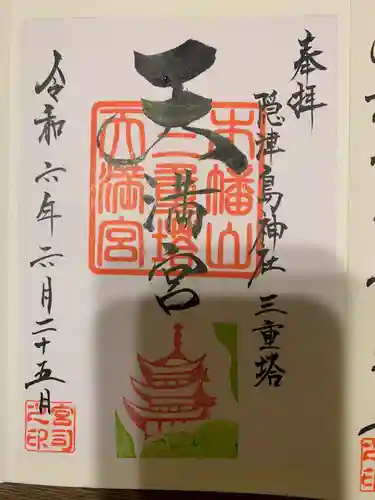 奉拝
隠津島神社 三重塔
天満宮
木幡山
三重塔
天満宮
令和六年六月二十五日
宮司之印